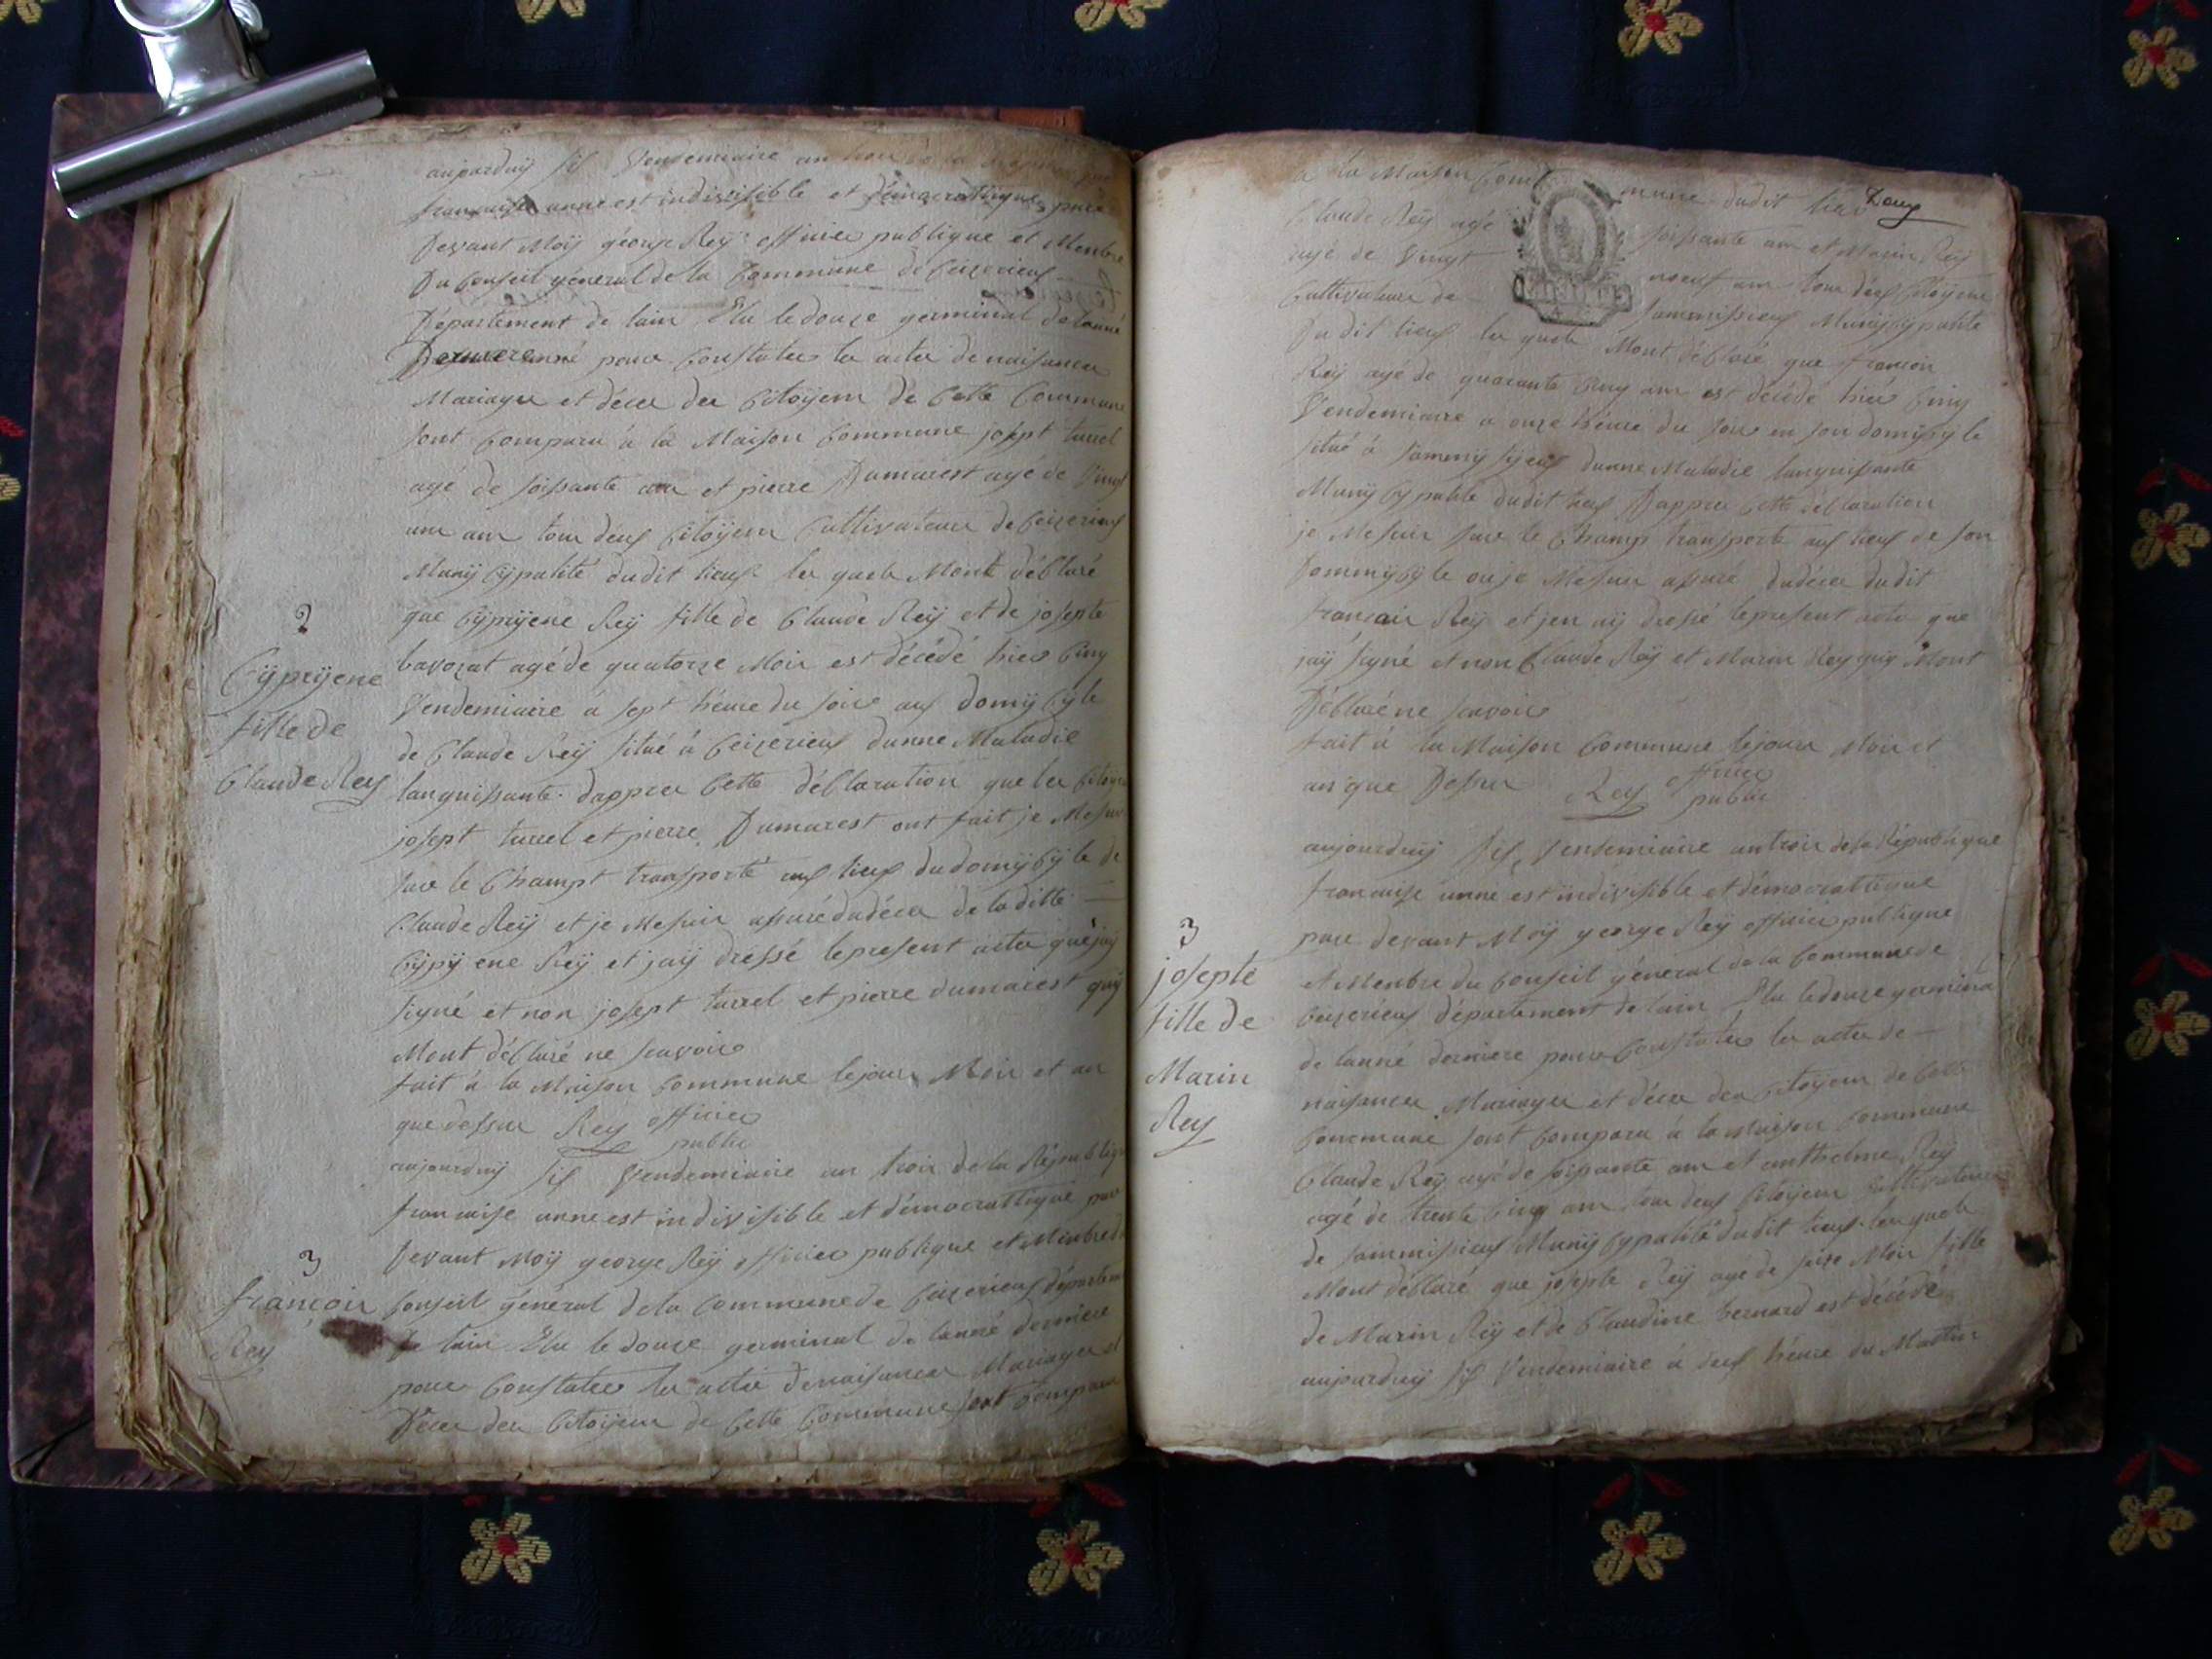 aujourduij sis Vendemiaire an troi de la
francaise unne est indivisible et démocrattique pare
Devant Moÿ george Reÿ officier publique et Menbre
Du Conseil géneral de la Commune de Ceizerieus
Département de lain Elu le douze germinal de lanné
Derniere pour Constater les actes de naisances
Mariages et déces des Citoÿens de Cette Commune
sont Comparu à la Maison Commune josept turrel
agé de soissante ans et pierre Dumarest agé de Vingt
um ans tous déus Citoÿens Cultivateurs de Ceizerieus
Munijcÿpalité dudit lieus les quels Mont déClaré
que Cÿprÿene Reÿ fille de Claude Reÿ et de josepte
bavozat agé de quatorze Mois est décédé hier Cinq
Vendemiaire à sept héure du soir aus domijcÿle
de Claude Reÿ situé à Ceizerieus dunne Maladie
languissante. dappres Cette déClaration que les Citoÿens
josept turrel et pierre Dumarest ont fait je Mesuis
sur le Champt transporté aus lieus du domijcÿle de
Claude Reÿ et je Mesuis assuré du déces de la ditte
Cÿpÿene Reÿ et jaÿ dressé le present actes que jaÿ
signé et non josept turrel et pierre dumarest quÿ
Mont déClaré ne scavoir
fait à la Maison Commune le jour Mois et an
que dessus Rey officier
public
2
Cÿprÿene
fille de
Claude Rey
aujourduij sis Vendemiaire an trois de la Républiq
francaise unne est indivisible et démocrattique pare
Devant Moÿ george Reÿ officier publique et Menbre du
Conseil géneral de la Commune de Ceizerieus départem
De lain Elu le douze germinal de lanné derniere
pour Constater les actes de naisances Mariages et
Déces des Citoÿens de Cette Commune sont Comparu
3
francois
Rey
Deux
a la Maison Commune dudit lieu
Claude Reÿ agé soissante ans et Marin Reÿ
agé de Vingt noeuf ans tous déus Citoÿens
Cultivateurs de sammissieus Munijcÿpalité
Du dit lieus les quels Mont déClaré que francois
Reÿ agé de quarante Cinq ans est décédé hier Cinq
Vendemiaire a onze héure du soir en son domijcÿle
situé à sammijsijeus dunne Maladie languissante
Munijcÿpalité dudit lieus Dappres Cette déClaration
je Mesuis sur le Champ transporté aus lieus de son
Dommijcÿle ou je Mesuis assuré du déces dudit
francois Reÿ et jen aÿ dressé le present acte que
jaÿ signé et non Claude Reÿ et Marin Rey quÿ Mont
Déclaré ne scavoir
fait à la Maison Commune le jour Mois et
an que Dessus Rey officier
public
aujourduij sis Vendemiaire an trois de la République
francaise unne est indivisible et démocrattique
pare devant Moÿ george Reÿ officier publique
et Menbre du Conseil géneral de la Commune de
Ceizerieus département de lain Elu le douze germina
de lanné derniere pour Constater les actes de
naisances Mariages et déces des Citoÿens de Cette
Commune sont Comparu à la Maison Commune
Claude Reÿ agé de soissante ans et anthelme Reÿ
agé de trente Cinq ans tous deus Citoÿens Cultivateurs
de sammissieus Munijcÿpalité dudit lieus les quels
Mont déClaré que josepte Reÿ agé de seize Mois fille
de Marin Reÿ et de Claudine bernard est décédé
aujourduij sis Vendemiaire à deus héure du Mattin
3
josepte
fille de
Marin
Rey